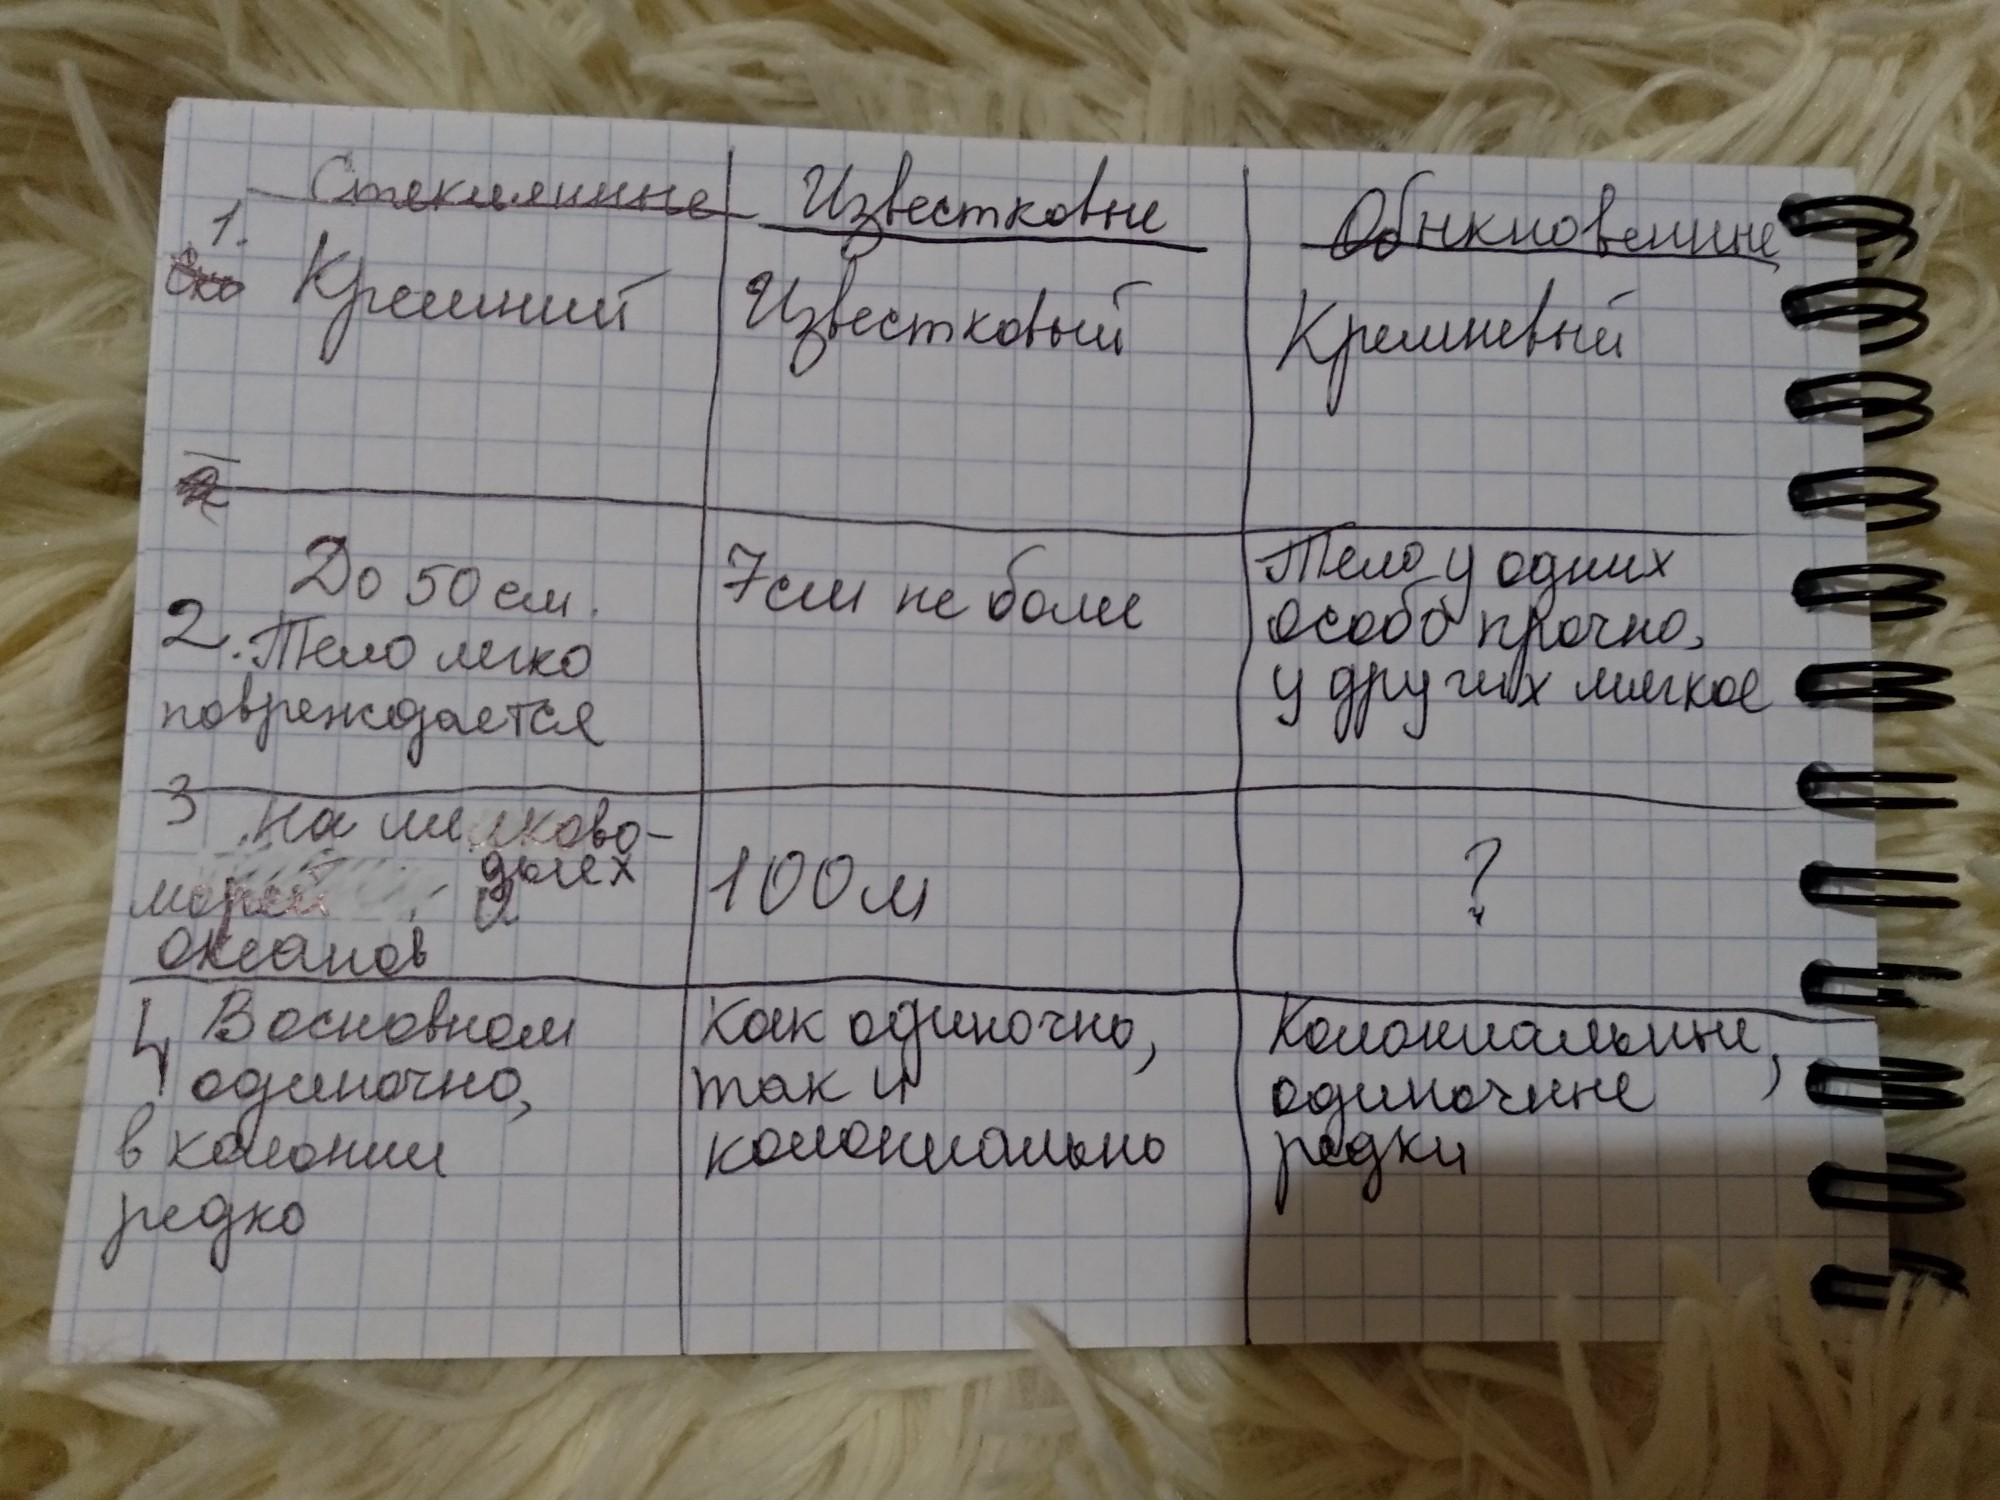 Стеклянные Известковые Обыкновенные
1.
Кремний Известковый Кремневый
До 50 см. 7см не более Тело у одних
2. Тело легко особо прочно,
повреждается у других мягкое
3 На мелково-
дьях 100м ?
морей и
океанов
4 В основном Как одиночно, Колониальные,
одиночно, так и одиночные
в колонии колониально редки
редко